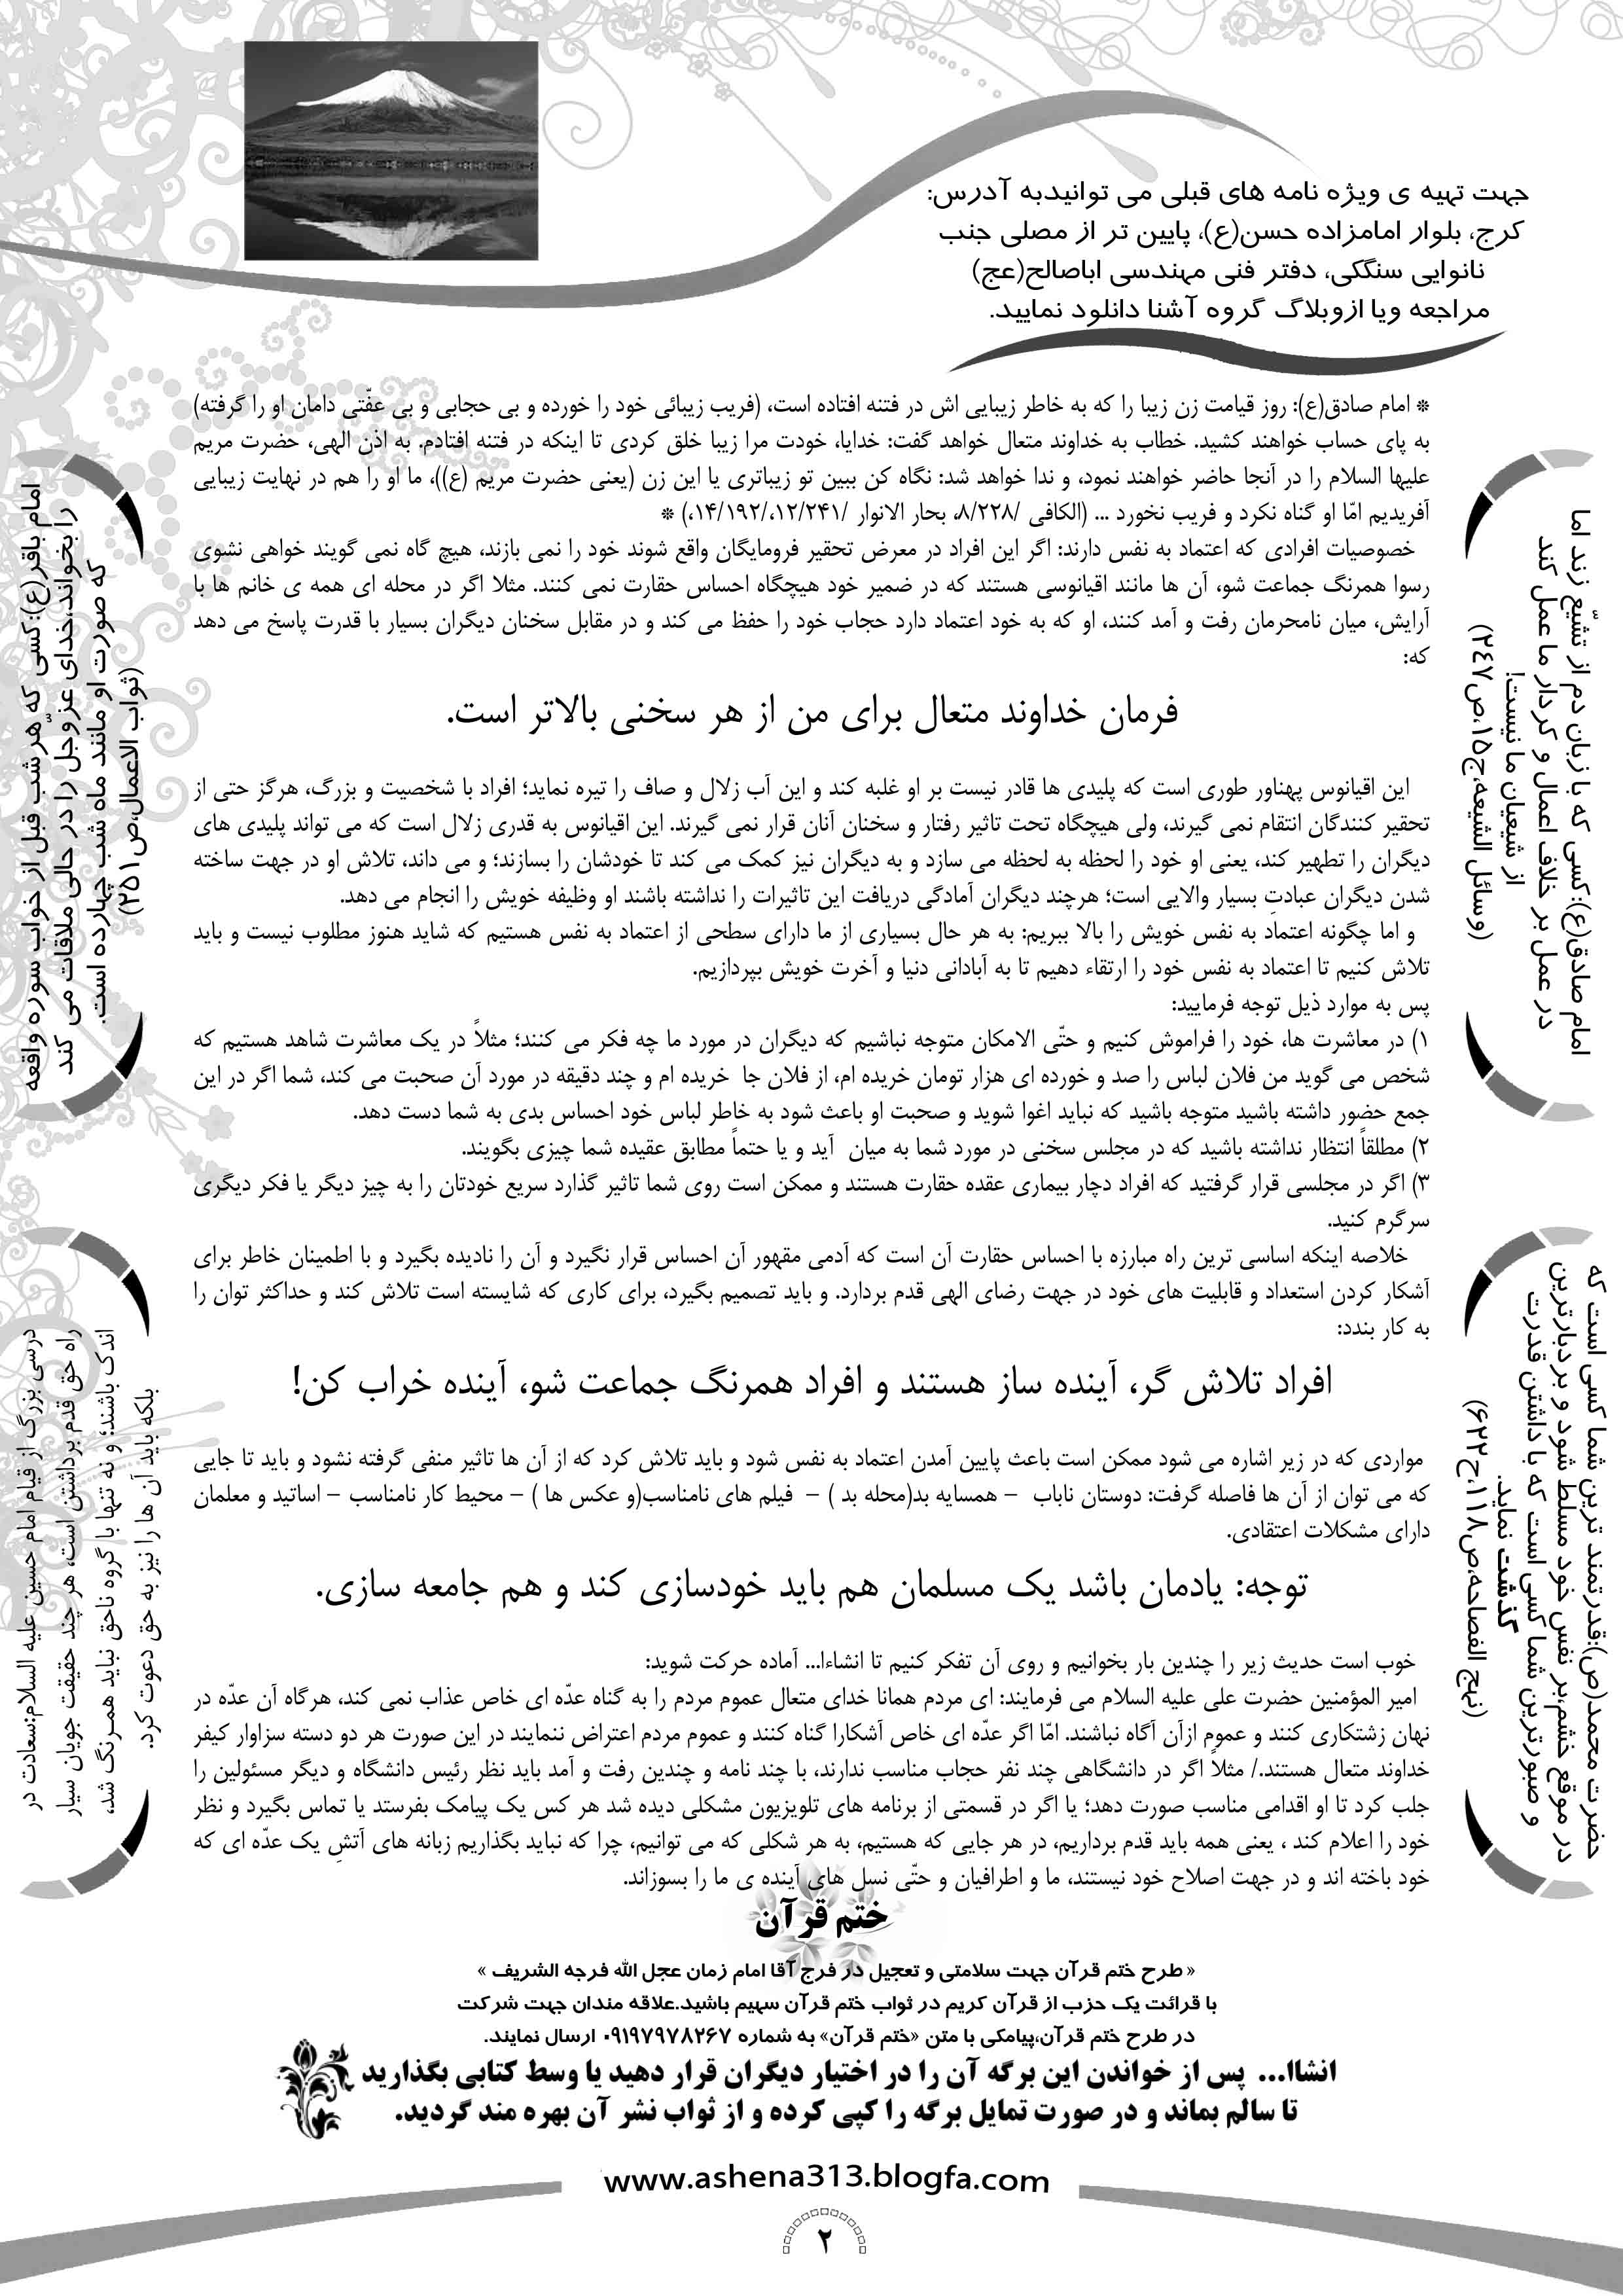 جهت تهیه ی ویژه نامه های قبلی می توانیدبه آدرس:
کرج، بلوار امامزاده حسن(ع)، پایین تر از مصلی جنب
نانوایی سنگکی، دفتر فنی مهندسی اباصالح(عج)
مراجعه ویا ازوبلاگ گروه آشنا دانلود نمایید.
* امام صادق(ع): روز قیامت زن زیبا را که به خاطر زیبایی اش در فتنه افتاده است، (فریب زیبائی خود را خورده و بی حجابی و بی عفّتی دامان او را گرفته)
به پای حساب خواهند کشید. خطاب به خداوند متعال خواهد گفت: خدایا، خودت مرا زیبا خلق کردی تا اینکه در فتنه افتادم. به اذن الهی، حضرت مریم
علیها السلام را در آنجا حاضر خواهند نمود، و ندا خواهد شد: نگاه کن ببین تو زیباتری یا این زن (یعنی حضرت مریم (ع))، ما او را هم در نهایت زیبایی
آفریدیم امّا او گناه نکرد و فریب نخورد ... (الکافی /۸/۲۲۸، بحار الانوار /۱۴/۱۹۲/،۱۲/۲۴۱،) *
خصوصیات افرادی که اعتماد به نفس دارند: اگر این افراد در معرض تحقیر فرومایگان واقع شوند خود را نمی بازند، هیچ گاه نمی گویند خواهی نشوی
رسوا همرنگ جماعت شو، آن ها مانند اقیانوسی هستند که در ضمیر خود هیچگاه احساس حقارت نمی کنند. مثلا اگر در محله ای همه ی خانم ها با
آرایش، میان نامحرمان رفت و آمد کنند، او که به خود اعتماد دارد حجاب خود را حفظ می کند و در مقابل سخنان دیگران بسیار با قدرت پاسخ می دهد
که:
فرمان خداوند متعال برای من از هر سخنی بالاتر است.
این اقیانوس پهناور طوری است که پلیدی ها قادر نیست بر او غلبه کند و این آب زلال و صاف را تیره نماید؛ افراد با شخصیت و بزرگ، هرگز حتی از
تحقیر کنندگان انتقام نمی گیرند، ولی هیچگاه تحت تاثیر رفتار و سخنان آنان قرار نمی گیرند. این اقیانوس به قدری زلال است که می تواند پلیدی های
دیگران را تطهیر کند، یعنی او خود را لحظه به لحظه می سازد و به دیگران نیز کمک می کند تا خودشان را بسازند؛ و می داند، تلاش او در جهت ساخته
شدن دیگران عبادتِ بسیار والایی است؛ هرچند دیگران آمادگی دریافت این تاثیرات را نداشته باشند او وظیفه خویش را انجام می دهد.
و اما چگونه اعتماد به نفس خویش را بالا ببریم: به هر حال بسیاری از ما دارای سطحی از اعتماد به نفس هستیم که شاید هنوز مطلوب نیست و باید
تلاش کنیم تا اعتماد به نفس خود را ارتقاء دهیم تا به آبادانی دنیا و آخرت خویش بپردازیم.
پس به موارد ذیل توجه فرمایید:
۱) در معاشرت ها، خود را فراموش کنیم و حتّی الامکان متوجه نباشیم که دیگران در مورد ما چه فکر می کنند؛ مثلاً در یک معاشرت شاهد هستیم که
شخص می گوید من فلان لباس را صد و خورده ای هزار تومان خریده ام، از فلان جا خریده ام و چند دقیقه در مورد آن صحبت می کند، شما اگر در این
جمع حضور داشته باشید متوجه باشید که نباید اغوا شوید و صحبت او باعث شود به خاطر لباس خود احساس بدی به شما دست دهد.
۲) مطلقاً انتظار نداشته باشید که در مجلس سخنی در مورد شما به میان آید و یا حتماً مطابق عقیده شما چیزی بگویند.
۳) اگر در مجلسی قرار گرفتید که افراد دچار بیماری عقده حقارت هستند و ممکن است روی شما تاثیر گذارد سریع خودتان را به چیز دیگر یا فکر دیگری
سرگرم کنید.
خلاصه اینکه اساسی ترین راه مبارزه با احساس حقارت آن است که آدمی مقهور آن احساس قرار نگیرد و آن را نادیده بگیرد و با اطمینان خاطر برای
آشکار کردن استعداد و قابلیت های خود در جهت رضای الهی قدم بردارد. و باید تصمیم بگیرد، برای کاری که شایسته است تلاش کند و حداکثر توان را
به کار بندد:
افراد تلاش گر، آینده ساز هستند و افراد همرنگ جماعت شو، آینده خراب کن!
مواردی که در زیر اشاره می شود ممکن است باعث پایین آمدن اعتماد به نفس شود و باید تلاش کرد که از آن ها تاثیر منفی گرفته نشود و باید تا جایی
که می توان از آن ها فاصله گرفت: دوستان ناباب – همسایه بد(محله بد ) – فیلم های نامناسب(و عکس ها ) – محیط کار نامناسب – اساتید و معلمان
دارای مشکلات اعتقادی.
توجه: یادمان باشد یک مسلمان هم باید خودسازی کند و هم جامعه سازی.
خوب است حدیث زیر را چندین بار بخوانیم و روی آن تفکر کنیم تا انشاءا... آماده حرکت شوید:
امیر المؤمنین حضرت علی علیه السلام می فرمایند: ای مردم همانا خدای متعال عموم مردم را به گناه عدّه ای خاص عذاب نمی کند، هرگاه آن عدّه در
نهان زشتکاری کنند و عموم ازآن آگاه نباشند. امّا اگر عدّه ای خاص آشکارا گناه کنند و عموم مردم اعتراض ننمایند در این صورت هر دو دسته سزاوار کیفر
خداوند متعال هستند./ مثلاً اگر در دانشگاهی چند نفر حجاب مناسب ندارند، با چند نامه و چندین رفت و آمد باید نظر رئیس دانشگاه و دیگر مسئولین را
جلب کرد تا او اقدامی مناسب صورت دهد؛ یا اگر در قسمتی از برنامه های تلویزیون مشکلی دیده شد هر کس یک پیامک بفرستد یا تماس بگیرد و نظر
خود را اعلام کند ، یعنی همه باید قدم برداریم، در هر جایی که هستیم، به هر شکلی که می توانیم، چرا که نباید بگذاریم زبانه های آتشِ یک عدّه ای که
خود باخته اند و در جهت اصلاح خود نیستند، ما و اطرافیان و حتّی نسل های آینده ی ما را بسوزاند.
ختم قرآن
« طرح ختم قرآن جهت سلامتی و تعجیل در فرج آقا امام زمان عجل الله فرجه الشریف »
با قرائت یک حزب از قرآن کریم در ثواب ختم قرآن سهیم باشید.علاقه مندان جهت شرکت
در طرح ختم قرآن،پیامکی با متن «ختم قرآن» به شماره ۰۹۱۹۷۹۷۸۲۶۷ ارسال نمایند.
انشاا... پس از خواندن این برگه آن را در اختیار دیگران قرار دهید یا وسط کتابی بگذارید
تا سالم بماند و در صورت تمایل برگه را کپی کرده و از ثواب نشر آن بهره مند گردید.
www.ashena313.blogfa.com
۲
امام صادق(ع):کسی که با زبان دم از تشیّع زند اما
در عمل بر خلاف اعمال و کردار ما عمل کند
از شیعیان ما نیست!
(وسائل الشیعه،ج۱۵،ص۲۴۷)
حضرت محمد(ص):قدرتمند ترین شما کسی است که
در موقع خشم،بر نفس خود مسلط شود و بردبارترین
و صبورترین شما کسی است که با داشتن قدرت
گذشت نماید.
(نهج الفصاحه،ص۱۱۸،ح۶۲۲)
امام باقر(ع):کسی که هرشب قبل از خواب سوره واقعه
را بخواند،خدای عزّوجل را در حالی ملاقات می کند
که صورت او مانند ماه شب چهارده است.
(ثواب الاعمال،ص۲۵۱)
درسی بزرگ از قیام امام حسین علیه السلام:سعادت در
راه حق قدم برداشتن است، هر چند حقیقت جویان سیار
اندک باشند؛ و نه تنها با گروه ناحق نباید همرنگ شد،
بلکه باید آن ها را نیز به حق دعوت کرد.